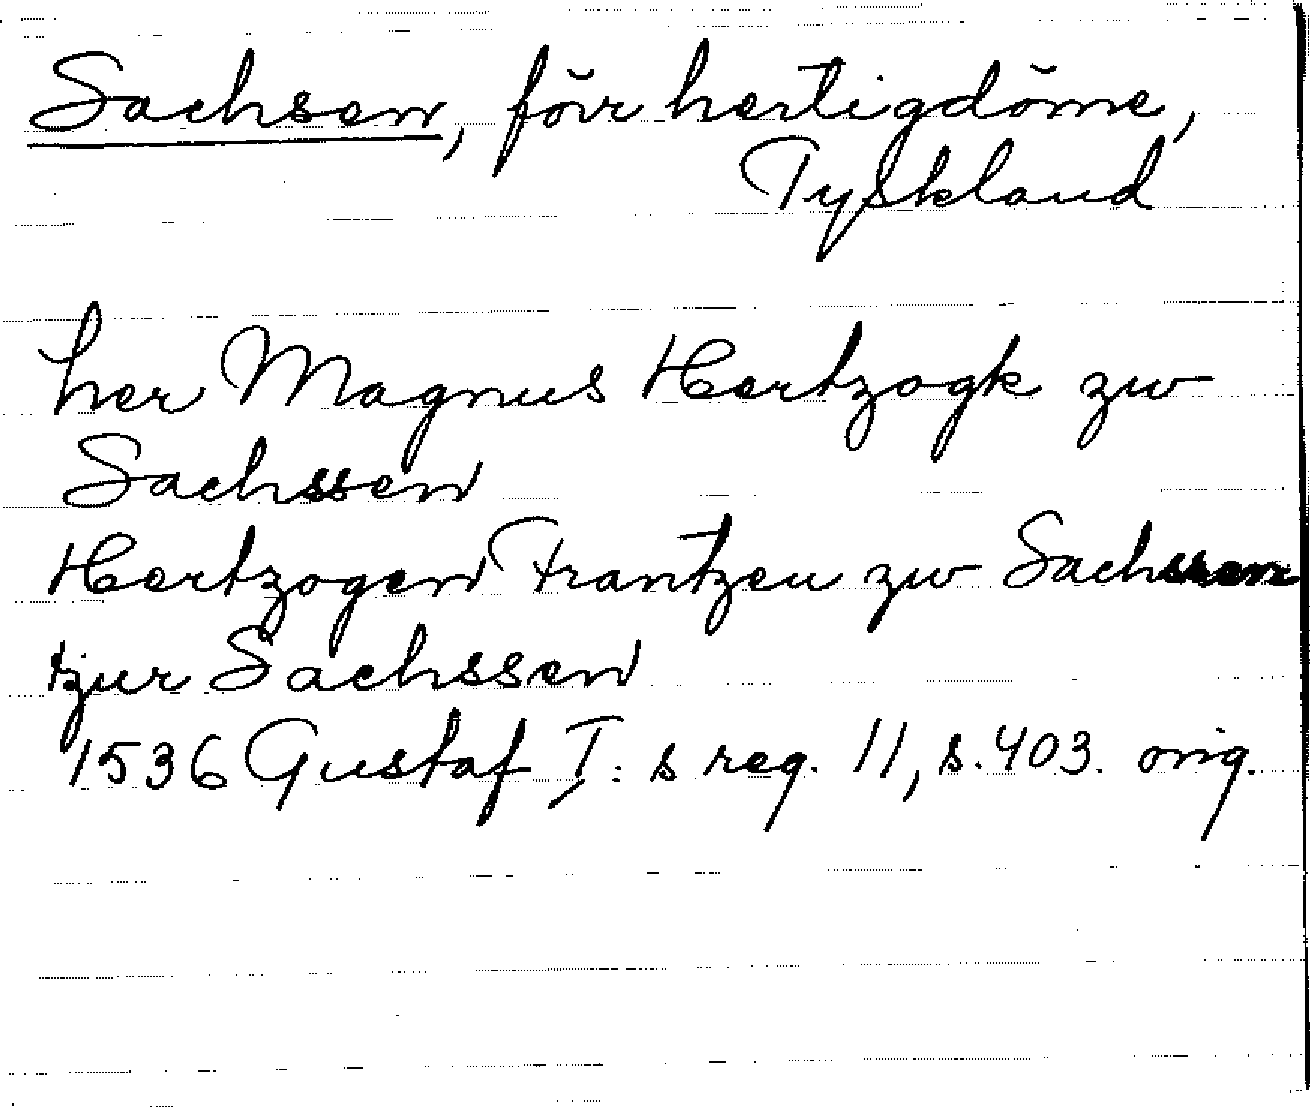 Sachsen, förr hertigdöme,
Tyskland
her Magnus Hertzogk zw
Sachssen
Hertzogen Frantzen zw Sachssen
tzur Sachssen
1536 Gustaf I:s reg. 11, s. 403. orig.